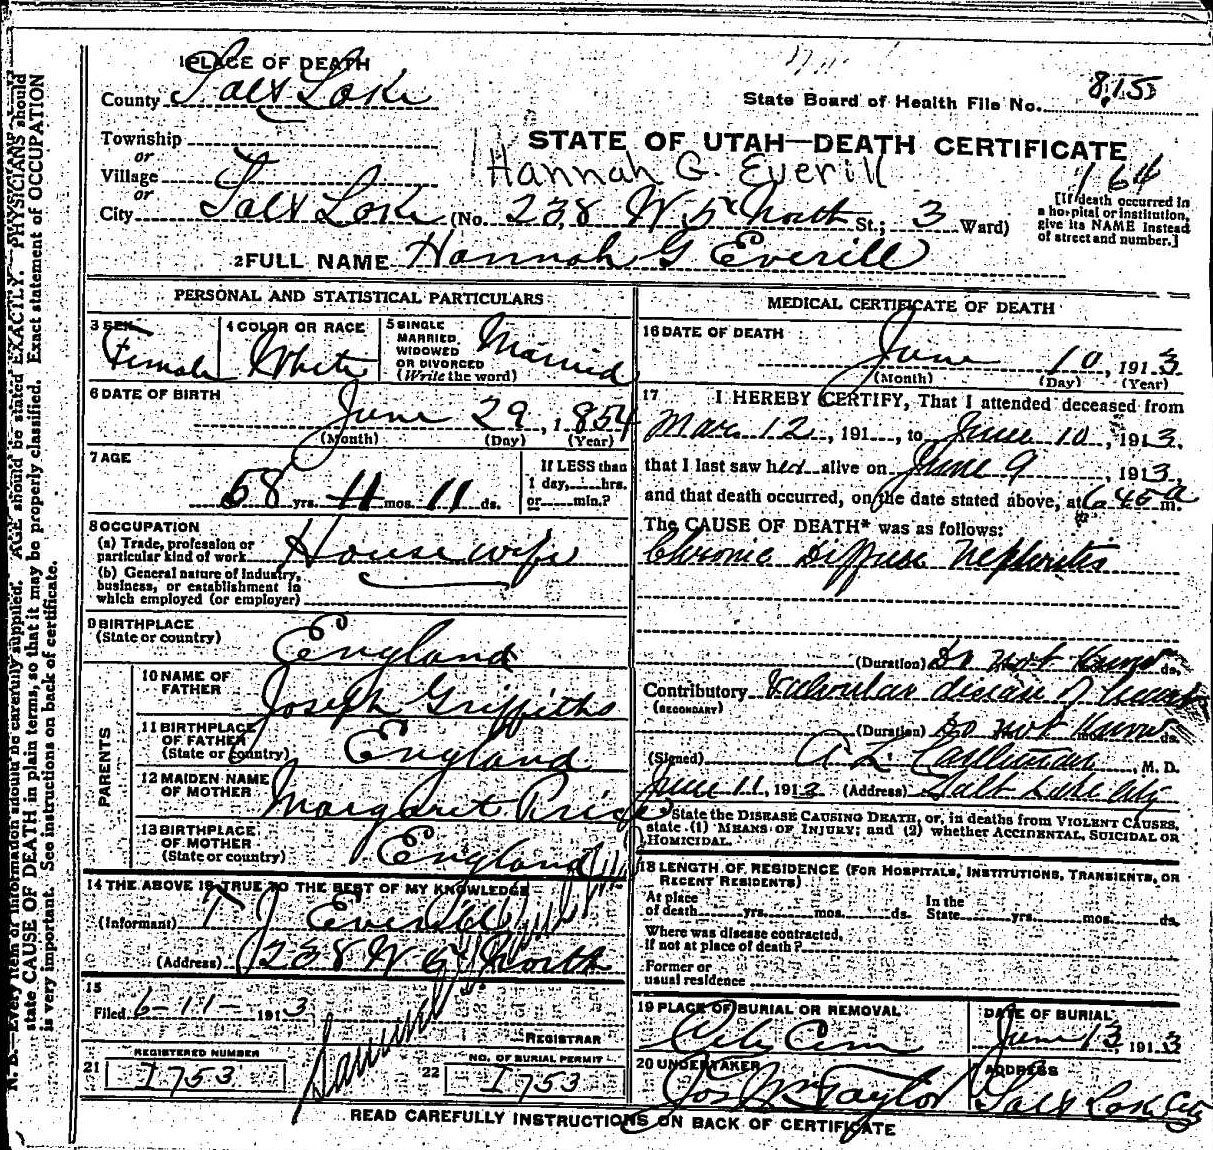 1 PLACE OF DEATH
County Salt Lake
State Board of Health File No. 815
Township
or
Village
or
STATE OF UTAH—DEATH CERTIFICATE
Hannah G. Everill
164
City Salt Lake (No. 238 W 5x North St.; 3 Ward)
[If death occurred in
a hospital or institution,
give its NAME instead
of street and number.]
2 FULL NAME Hannah G Everill
N. B.—Every item of information should be carefully supplied. AGE should be stated EXACTLY. PHYSICIANS should
state CAUSE OF DEATH in plain terms, so that it may be properly classified. Exact statement of OCCUPATION
is very important. See instructions on back of certificate.
PERSONAL AND STATISTICAL PARTICULARS
3 SEX Female
4 COLOR OR RACE White
5 SINGLE
MARRIED,
WIDOWED
OR DIVORCED
(Write the word)
Married
6 DATE OF BIRTH
June 29, 1854
(Month) (Day) (Year)
7 AGE
58 yrs. 11 mos. 11 ds.
If LESS than
1 day, hrs.
or min.?
8 OCCUPATION
(a) Trade, profession or
particular kind of work Housewife
(b) General nature of Industry,
business, or establishment in
which employed (or employer)
9 BIRTHPLACE
(State or country) England
PARENTS
10 NAME OF
FATHER Joseph Griffiths
11 BIRTHPLACE
OF FATHER
(State or country) England
12 MAIDEN NAME
OF MOTHER Margaret Price
13 BIRTHPLACE
OF MOTHER
(State or country) England
14 THE ABOVE IS TRUE TO THE BEST OF MY KNOWLEDGE
(Informant) T J Everill
(Address) 238 W 5x North
15
Filed 6-11- 1913
REGISTRAR
21 REGISTERED NUMBER
1753
22 NO. OF BURIAL PERMIT
1753
MEDICAL CERTIFICATE OF DEATH
16 DATE OF DEATH
June 10, 1913
(Month) (Day) (Year)
17 I HEREBY CERTIFY, That I attended deceased from
Mar. 12, 191 , to June 10, 1913,
that I last saw her alive on June 9 1913,
and that death occurred, on the date stated above, at 6 45 a m.
The CAUSE OF DEATH* was as follows:
Chronic Diffuse Nephritis
(Duration) Do not Know ds.
Contributory Valvular disease of heart
(SECONDARY)
(Duration) Do not Know ds.
(Signed) A L , M. D.
June 11, 1913 (Address) Salt Lake City
* State the DISEASE CAUSING DEATH, or, in deaths from VIOLENT CAUSES,
state (1) MEANS OF INJURY; and (2) whether ACCIDENTAL, SUICIDAL OR
HOMICIDAL.
18 LENGTH OF RESIDENCE (FOR HOSPITALS, INSTITUTIONS, TRANSIENTS, OR
RECENT RESIDENTS)
At place
of death yrs. mos. ds.
In the
State yrs. mos. ds.
Where was disease contracted,
If not at place of death?
Former or
usual residence
19 PLACE OF BURIAL OR REMOVAL
City Cem
DATE OF BURIAL
June 13, 1913
20 UNDERTAKER
Jos Wm Taylor
ADDRESS
Salt Lake City
READ CAREFULLY INSTRUCTIONS ON BACK OF CERTIFICATE